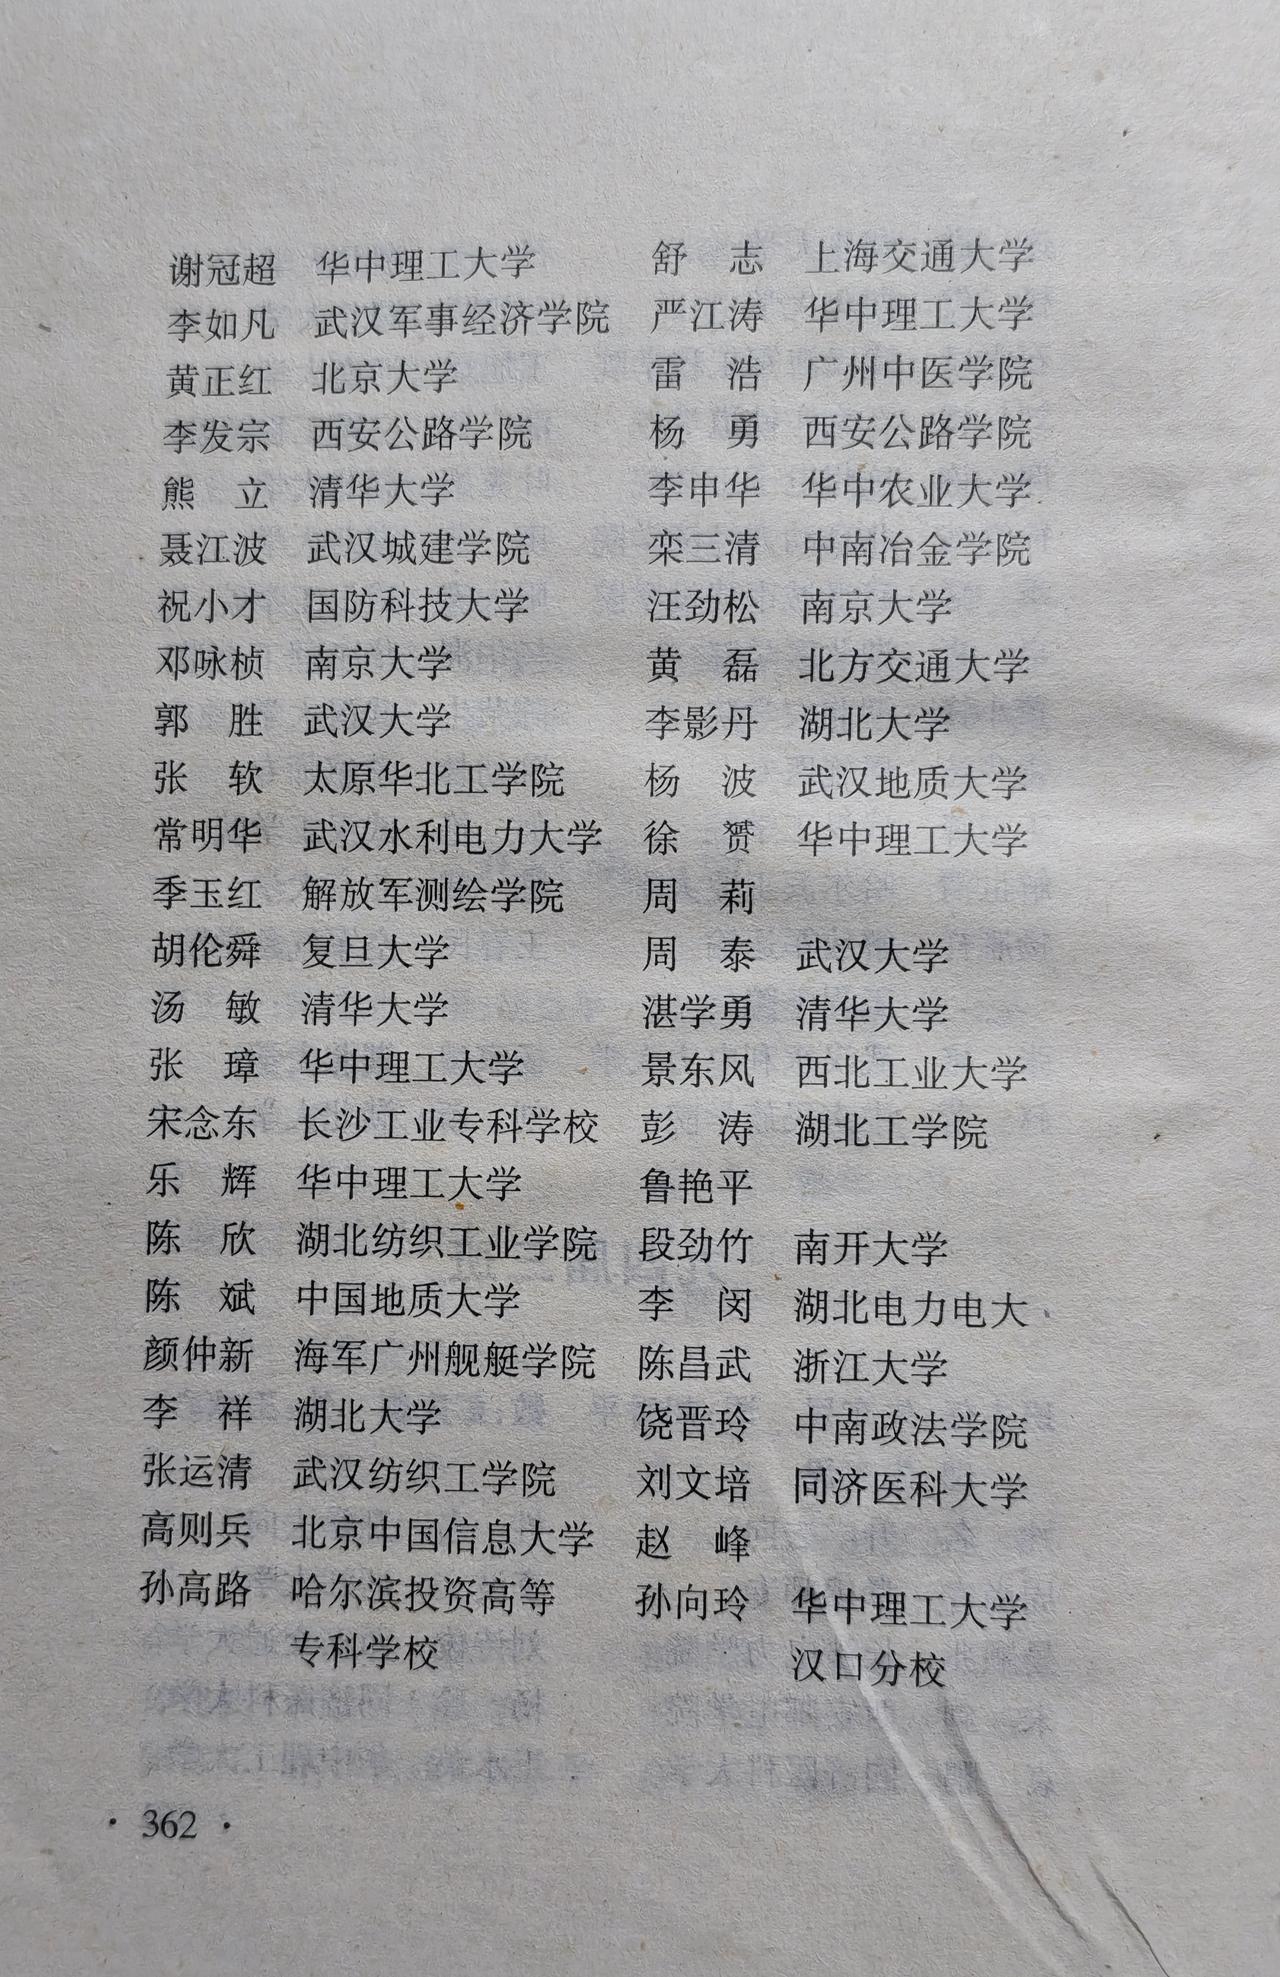 谢冠超 华中理工大学 舒 志 上海交通大学
李如凡 武汉军事经济学院 严江涛 华中理工大学
黄正红 北京大学 雷 浩 广州中医学院
李发宗 西安公路学院 杨 勇 西安公路学院
熊 立 清华大学 李申华 华中农业大学
聂江波 武汉城建学院 栾三清 中南冶金学院
祝小才 国防科技大学 汪劲松 南京大学
邓咏桢 南京大学 黄 磊 北方交通大学
郭 胜 武汉大学 李影丹 湖北大学
张 软 太原华北工学院 杨 波 武汉地质大学
常明华 武汉水利电力大学 徐 赟 华中理工大学
季玉红 解放军测绘学院 周 莉
胡伦舜 复旦大学 周 泰 武汉大学
汤 敏 清华大学 湛学勇 清华大学
张 璋 华中理工大学 景东风 西北工业大学
宋念东 长沙工业专科学校 彭 涛 湖北工学院
乐 辉 华中理工大学 鲁艳平
陈 欣 湖北纺织工业学院 段劲竹 南开大学
陈 斌 中国地质大学 李 闵 湖北电力电大
颜仲新 海军广州舰艇学院 陈昌武 浙江大学
李 祥 湖北大学 饶晋玲 中南政法学院
张运清 武汉纺织工学院 刘文培 同济医科大学
高则兵 北京中国信息大学 赵 峰
孙高路 哈尔滨投资高等 孙向玲 华中理工大学
专科学校 汉口分校
· 362 ·